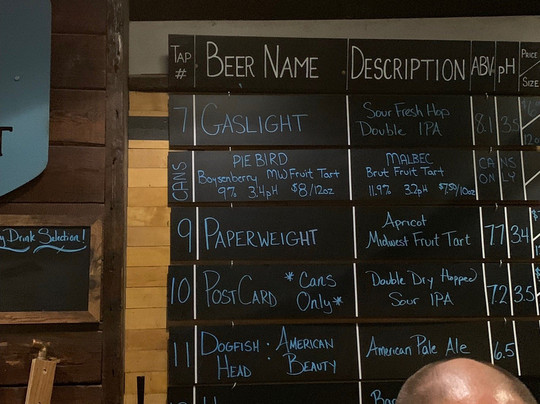 TAP # BEER NAME DESCRIPTION ABV pH PRICE SIZE
7 GASLIGHT Sour Fresh Hop Double IPA 8.1 3.5
CANS PIE BIRD MALBEC CANS ONLY
Boysenberry MW Fruit Tart Brut Fruit Tart
9% 3.4pH $8/12oz 11.9% 3.2pH $7.50/10oz
9 PAPERWEIGHT Apricot Midwest Fruit Tart 7.7 3.4
10 POSTCARD *Cans Only* Double Dry Hopped Sour IPA 7.2 3.5
11 DOGFISH HEAD · AMERICAN BEAUTY American Pale Ale 6.5
Drink Selection!
T